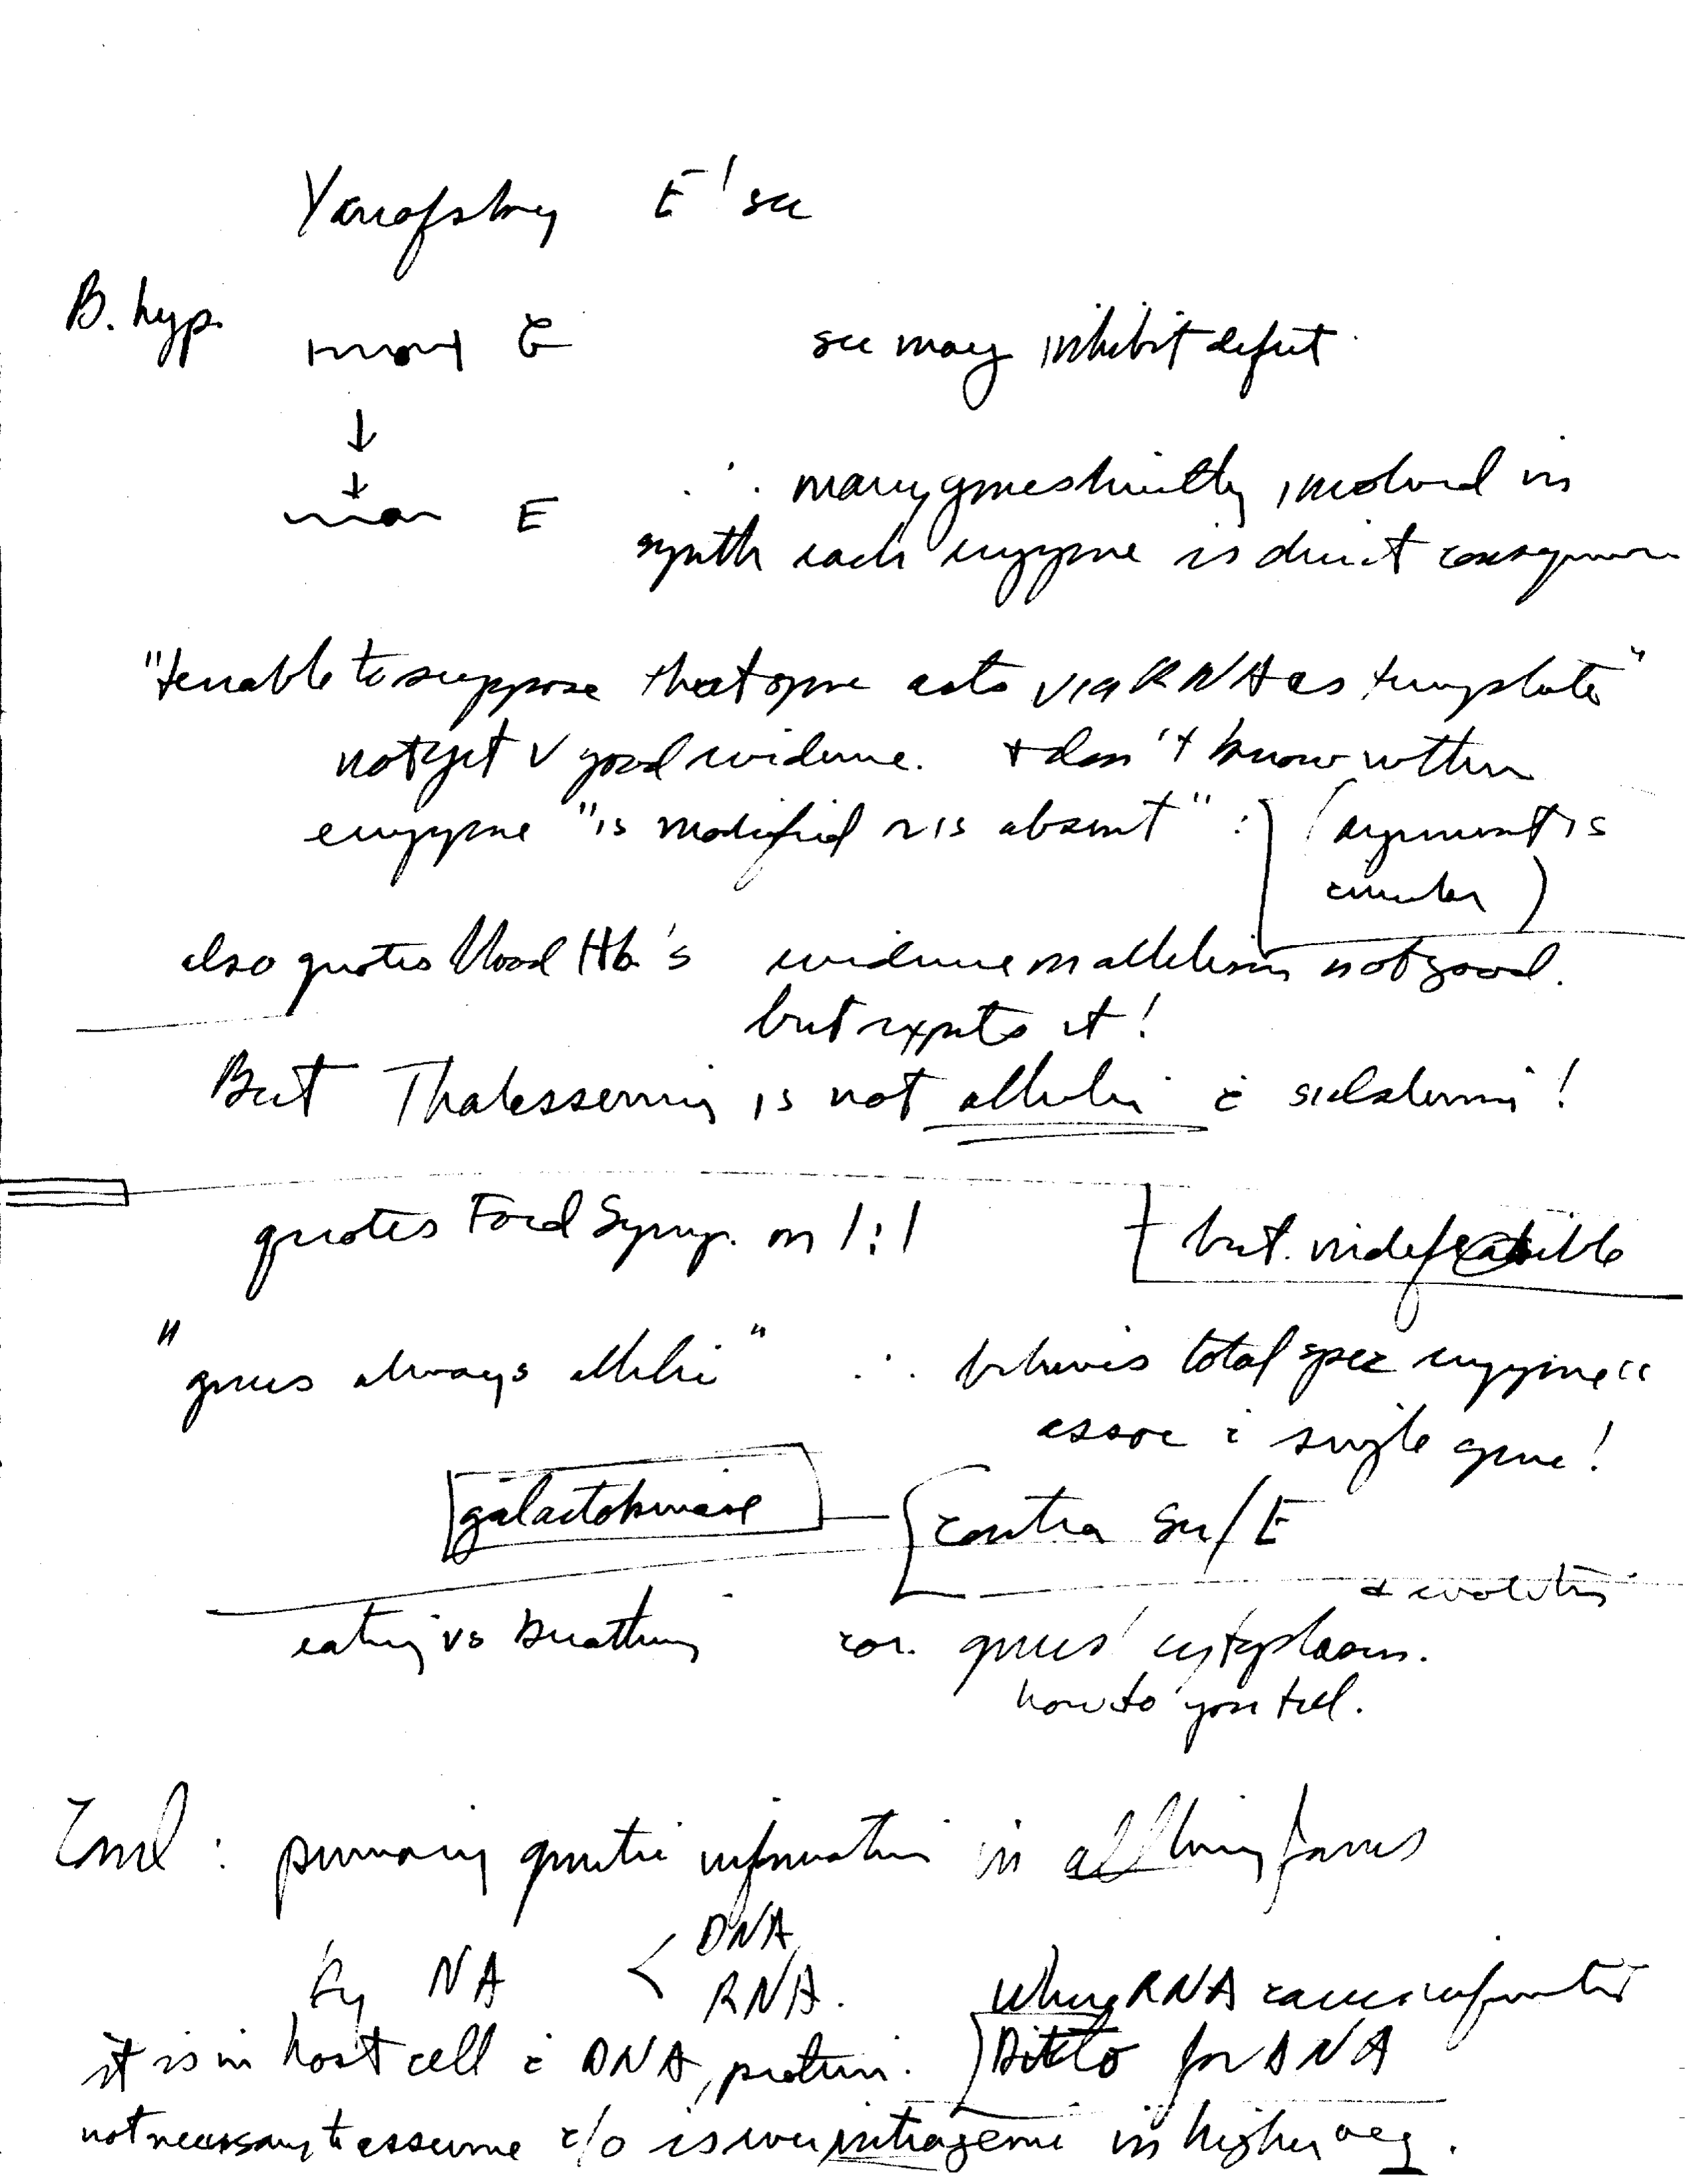 Yanofsky E'su
B. hyp.
su may inhibit defect.
↓
↓
E ∴ many genes directly involved in
synth each enzyme is direct consequence
"tenable to suppose that gene acts via RNA as template"
not yet v good evidence. + don't know whether
enzyme "is modified or is absent" : (argument is
circular)
also quotes blood Hb's evidence on allelism not good.
but expects it!
But Thalassemia is not allelic c̄ sicklemia!
quotes Ford Symp. on 1:1 but. indefeasible
"genes always allelic" ∴ believes total spec enzyme is
assoc c̄ single gene!
galactokinase contra Su/E
& evolution
eating vs breathing genes' cytoplasm.
how do you tell.
Concl : primary genetic information in all living forms
by NA < DNA
RNA. Where RNA carries information
it is in host cell c̄ DNA, protein. Ditto for DNA
not necessary to assume c/o is ever intragenic in higher org.